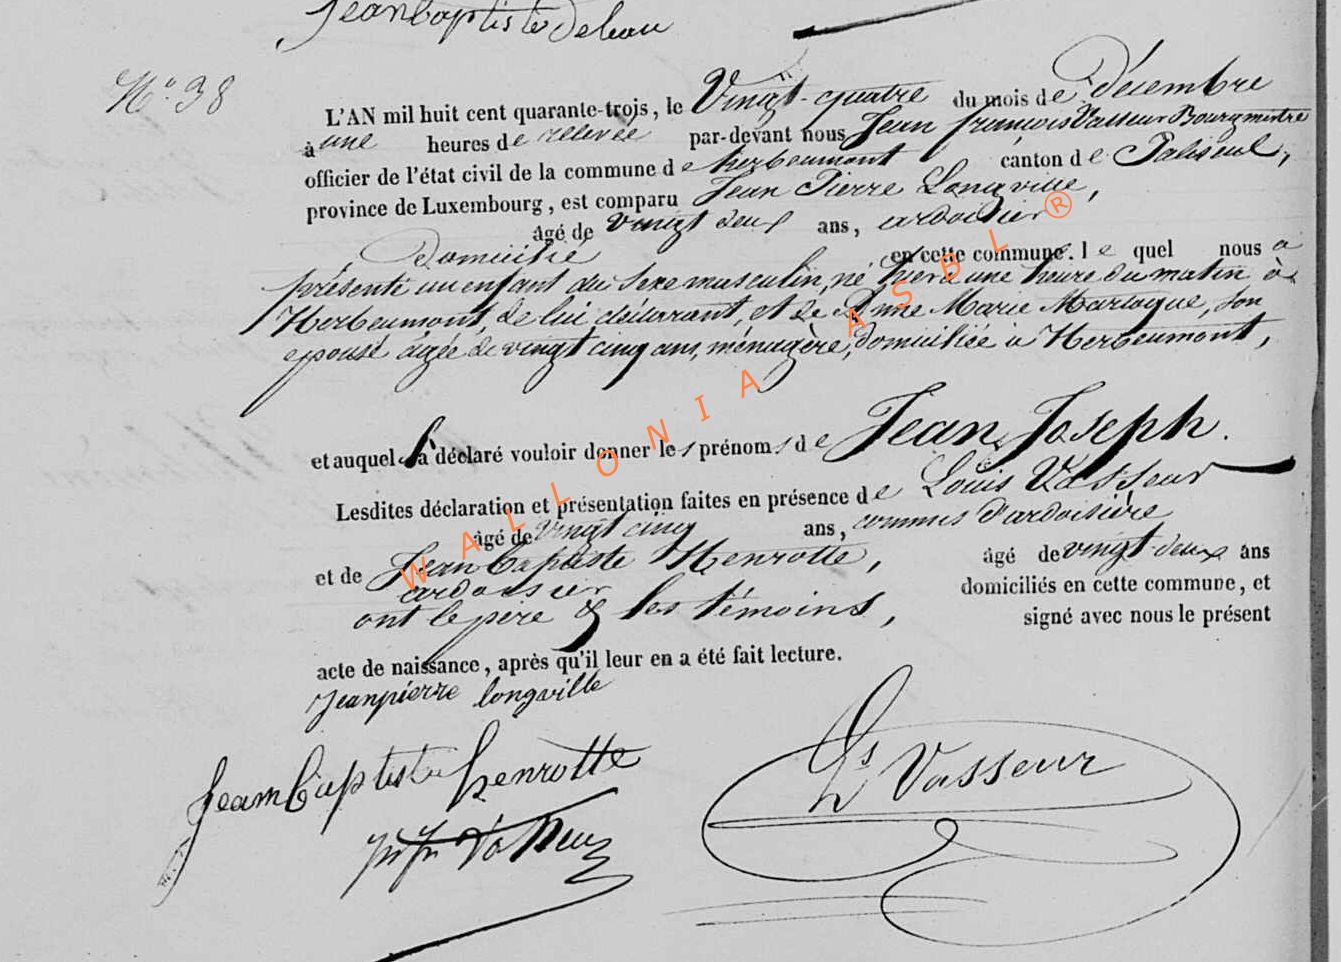 JeanBaptiste Deleau
N.º 38
L'AN mil huit cent quarante-trois, le Vingt-quatre du mois de Décembre
à une heures de relevée par-devant nous Jean françois Vasseur Bourgmestre
officier de l'état civil de la commune de herbeumont canton de Paliseul,
province de Luxembourg, est comparu Jean Pierre Longville,
âgé de vingt deux ans, ardoisier
Domicilié en cette commune. le quel nous a
présenté un enfant du sexe masculin, né hier à une heure du matin à
Herbeumont, de lui déclarant, et de Anne Marie Marlogue, son
epouse agée de vingt cinq ans, ménagère, domiciliée à Herbeumont,
et auquel il a déclaré vouloir donner les prénoms de Jean Joseph.
Lesdites déclaration et présentation faites en présence de Louis Vasseur
âgé de vingt cinq ans, commis d'ardoisière
et de Jean Baptiste Henrotte, âgé de vingt-deux ans
ardoisier domiciliés en cette commune, et
ont le père & les témoins, signé avec nous le présent
acte de naissance, après qu'il leur en a été fait lecture.
Jeanpierre longville
JeanBaptiste henrotte
Ls Vasseur
Vasseur
WALLONIA ASBL ®